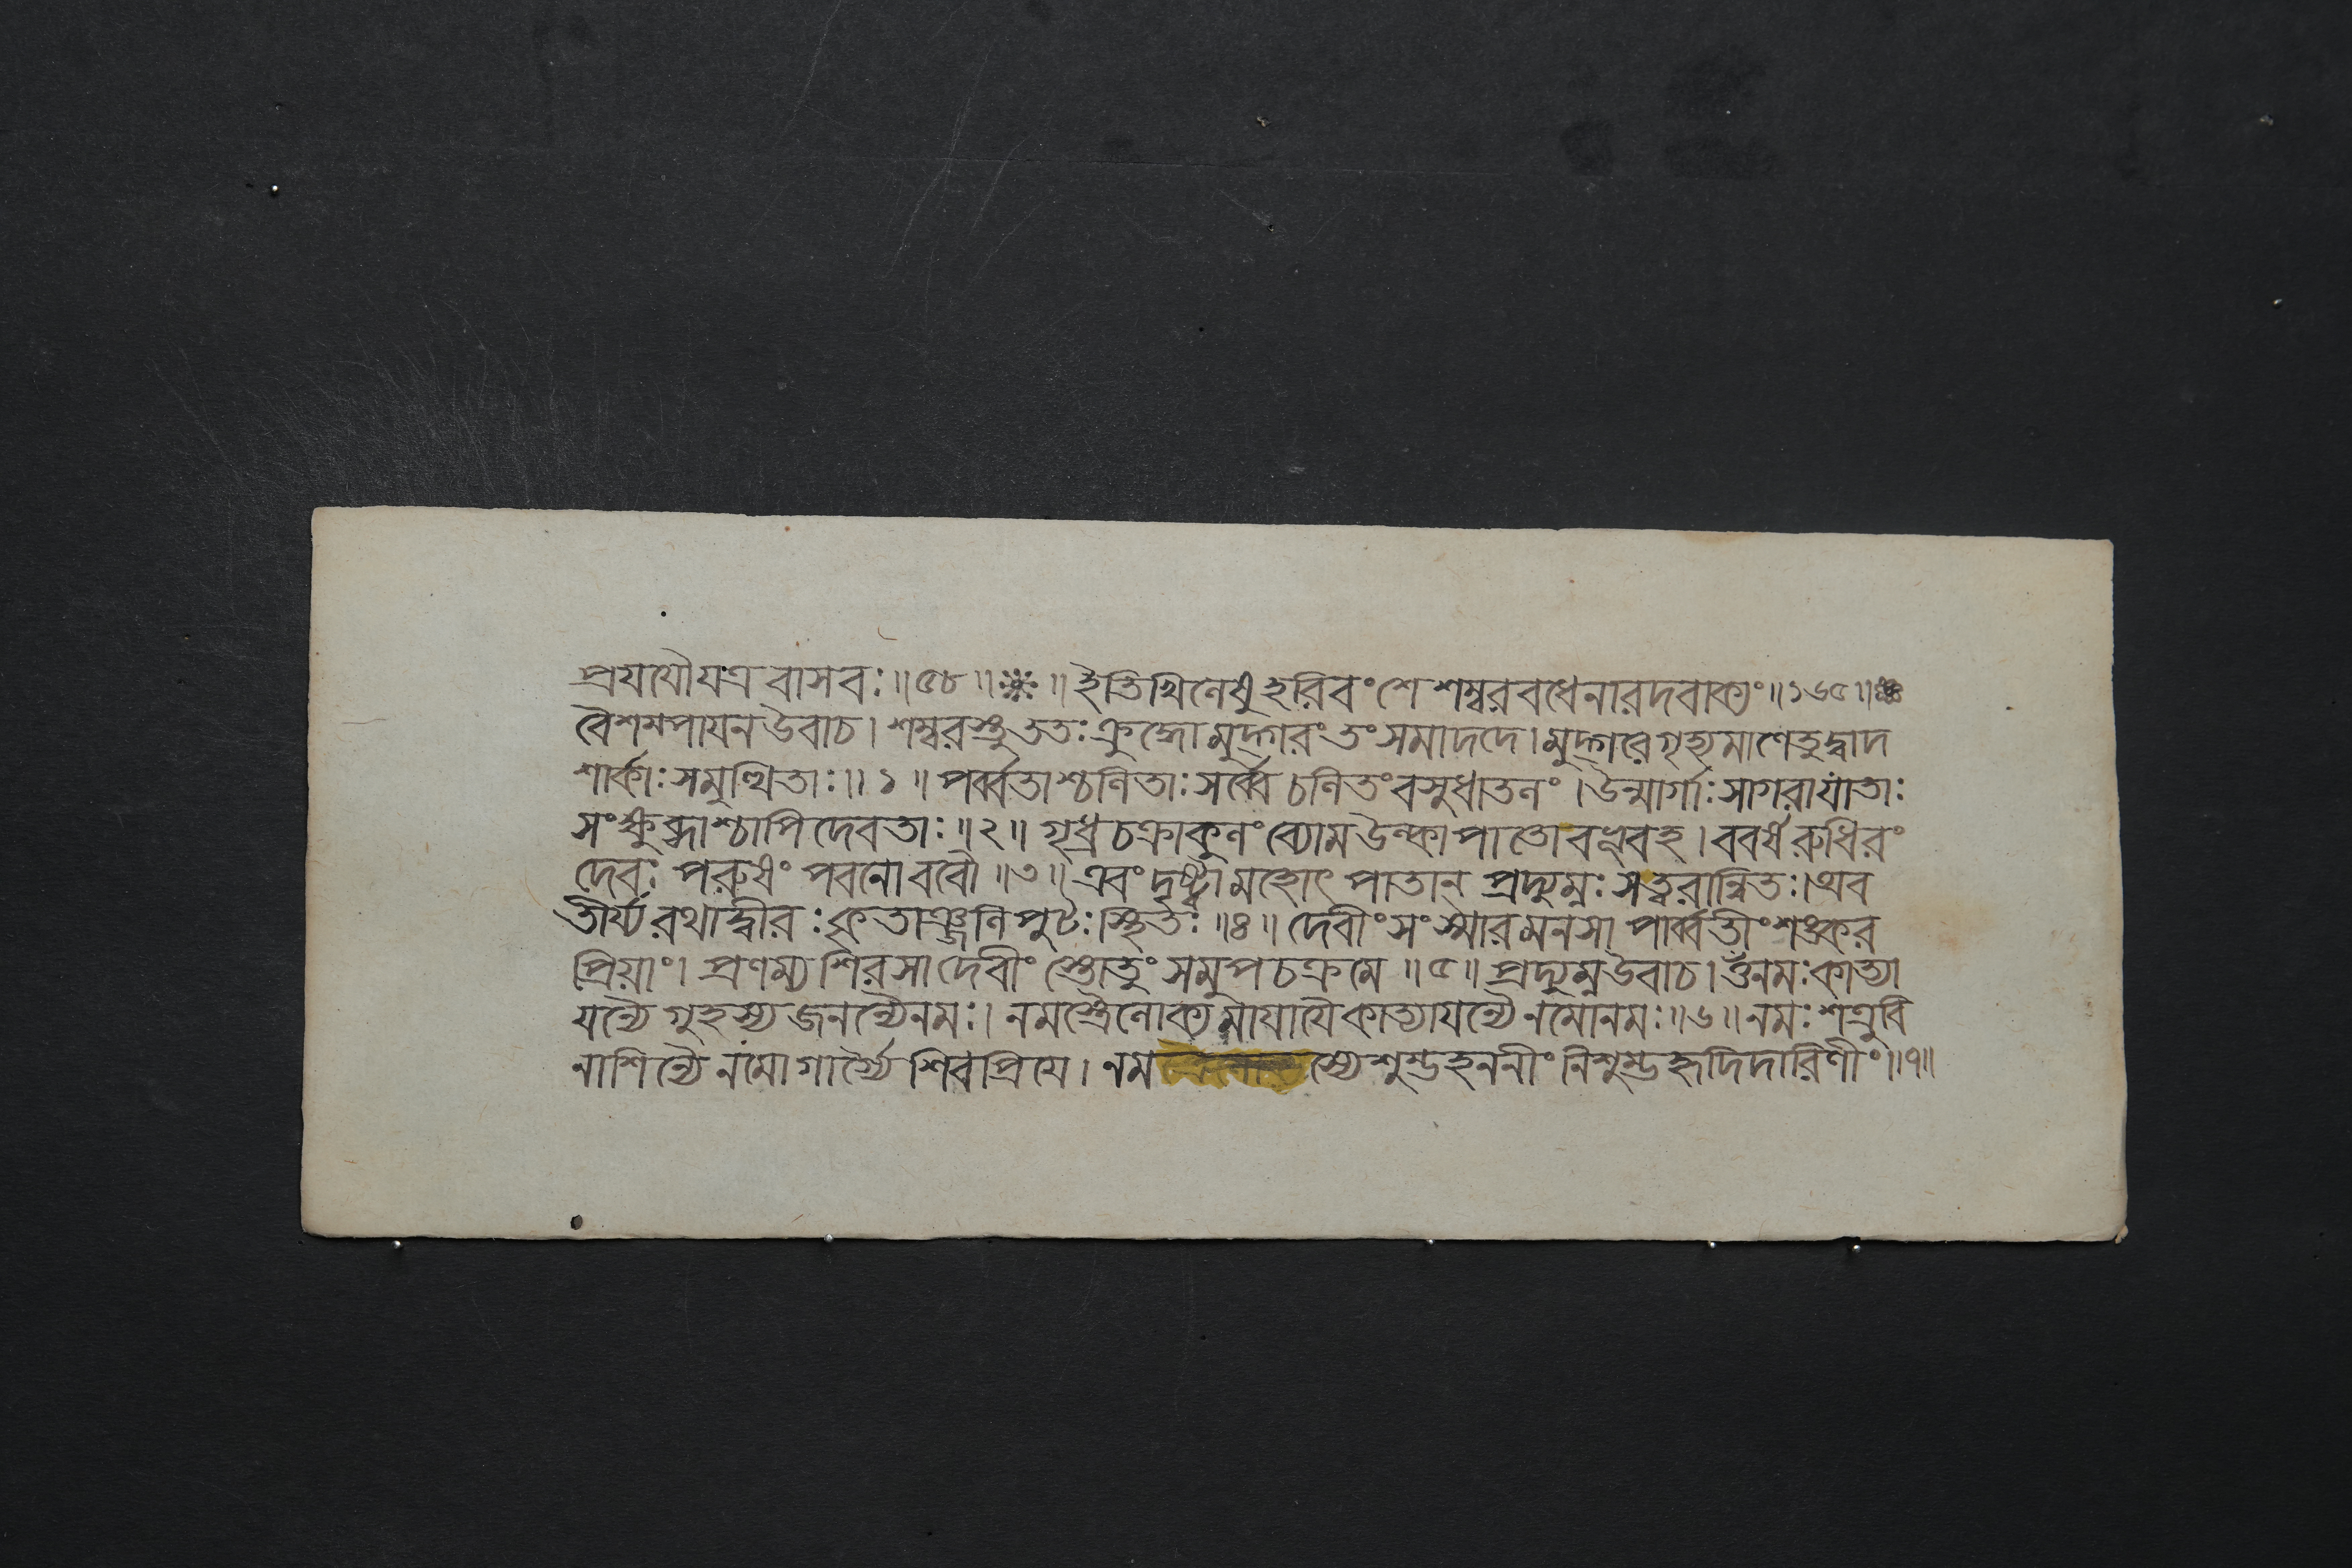 প্রযযৌযত্র বাসবঃ॥৫৮॥ ॥ইতিখিলেষুহরিবংশে শম্বরবধেনারদবাক্যং॥১৬৫॥
বৈশম্পাযনউবাচ। শম্বরস্তুততঃক্রুদ্ধোমুদ্গরংতংসমাদদে।মুদ্গরেগৃহ্যমাণেতুদ্বাদ
শার্কাঃসমুত্থিতাঃ॥১॥ পর্ব্বতাশ্চলিতাঃসর্ব্বেচলিতংবসুধাতলং।উন্মার্গাঃসাগরাযাতাঃ
সংক্ষুব্ধাশ্চাপিদেবতাঃ॥২॥ গৃধ্রচক্রাকুলংব্যোমউল্কাপাতোবভূবহ।ববর্ষরুধিরং
দেবঃ পরুষং পবনোববৌ॥৩॥ এবংদৃষ্ট্বামহোৎপাতান্ প্রদ্যুম্নঃসত্বরান্বিতঃ।অব
তীর্য্যরথাদ্বীরঃকৃতাঞ্জলিপুটঃস্থিতঃ॥৪॥ দেবীংসংস্মারমনসা পার্ব্বতীংশঙ্কর
প্রিয়াং। প্রণম্যশিরসাদেবীং স্তোতুং সমুপচক্রমে॥৫॥ প্রদ্যুম্নউবাচ।ওঁনমঃকাত্যা
যন্যৈ গুহস্যজনন্যৈনমঃ। নমস্ত্রৈলোক্যমাযাযৈকাত্যাযন্যৈনমোনমঃ॥৬॥নমঃশত্রুবি
নাশিন্যৈ নমোগার্গ্যৈ শিবপ্রিযে। নম স্যেশুম্ভহননীং নিশুম্ভহৃদিদারিণীং॥৭॥